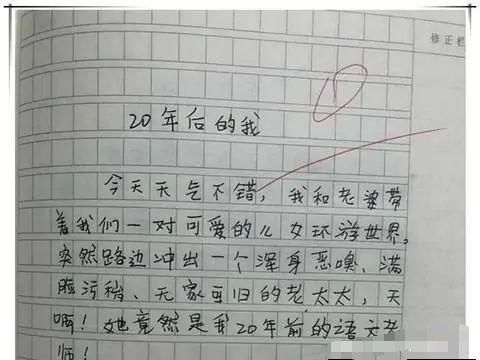 修正栏
20年后的我
今天天气不错，我和老婆带
着我们一对可爱的儿女环游世界。
突然路边冲出一个浑身恶嗅、满
脸污秽、无家可归的老太太，天
啊！她竟然是我20年前的语文老
师！